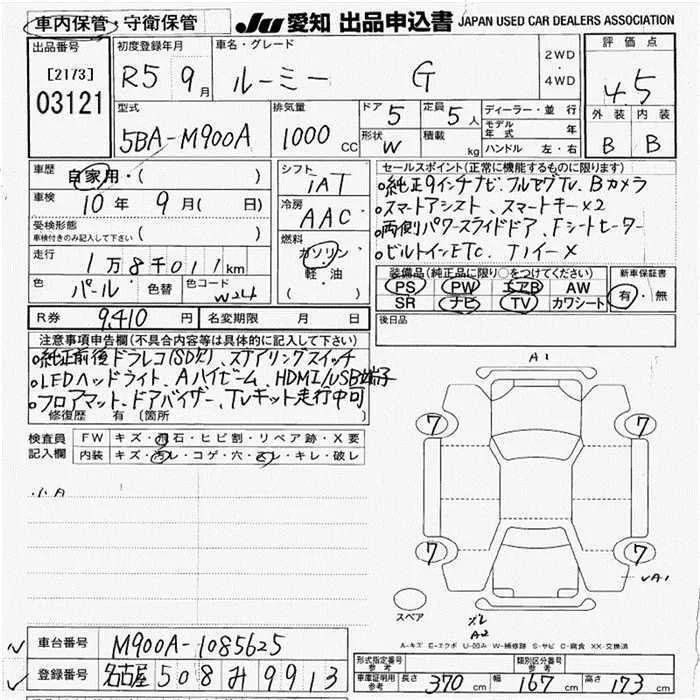 車内保管・守衛保管 JU 愛知 出品申込書 JAPAN USED CAR DEALERS ASSOCIATION
出品番号 初度登録年月 車名・グレード 2WD・4WD 評価点
[2173] R5 9月 ルーミー G 4.5
03121 型式 排気量 ドア 5 定員 5人 ディーラー・並行 外装 内装
5BA-M900A 1000 CC 形状 W 積載 kg モデル年式 年 B B
ハンドル 左・右
車歴 自家用・( ) シフト セールスポイント(正常に機能するものに限ります)
車検 10年 9月( 日) iAT ○純正9インチナビ フルセグTV、Bカメラ
受検形態 冷房 ○スマートアシスト、スマートキー×2
車検付きのみ記入して下さい ( ) AAC ○両側パワースライドドア、Fシートヒーター
走行 1万8千011km 燃料 ○ビルトインETC、
ガソリン・軽・油 装備品(純正品に限り○をつけてください) 新車保証書
色 パール 色替 色コード W24 ( ) PS PW エアB AW 有・無
SR ナビ TV カワシート
R券 9,410円 名変期限 月 日 後日品
注意事項申告欄(不具合内容等は具体的に記入して下さい)
○純正前後ドラレコ(SD欠)、ステアリングスイッチ
○LEDヘッドライト、Aハイビーム、HDMI/USB端子
○フロアマット、ドアバイザー、TVキット走行中可
修復歴 有(箇所 )
検査員記入欄 FW キズ・飛石・ヒビ割・リペア跡・X要
内装 キズ・汚レ・コゲ・穴・スレ・キレ・破レ
A1
7 7
7 7
A1
スペア
A2
A-キズ E-エクボ U-凹み W-補修跡 S-サビ C-腐食 XX-交換済
車台番号 M900A-1085625
登録番号 名古屋 508 み 9913
形式指定番号参考 類別区分番号参考
車庫証明用参考 長さ 370cm 幅 167cm 高さ 173cm